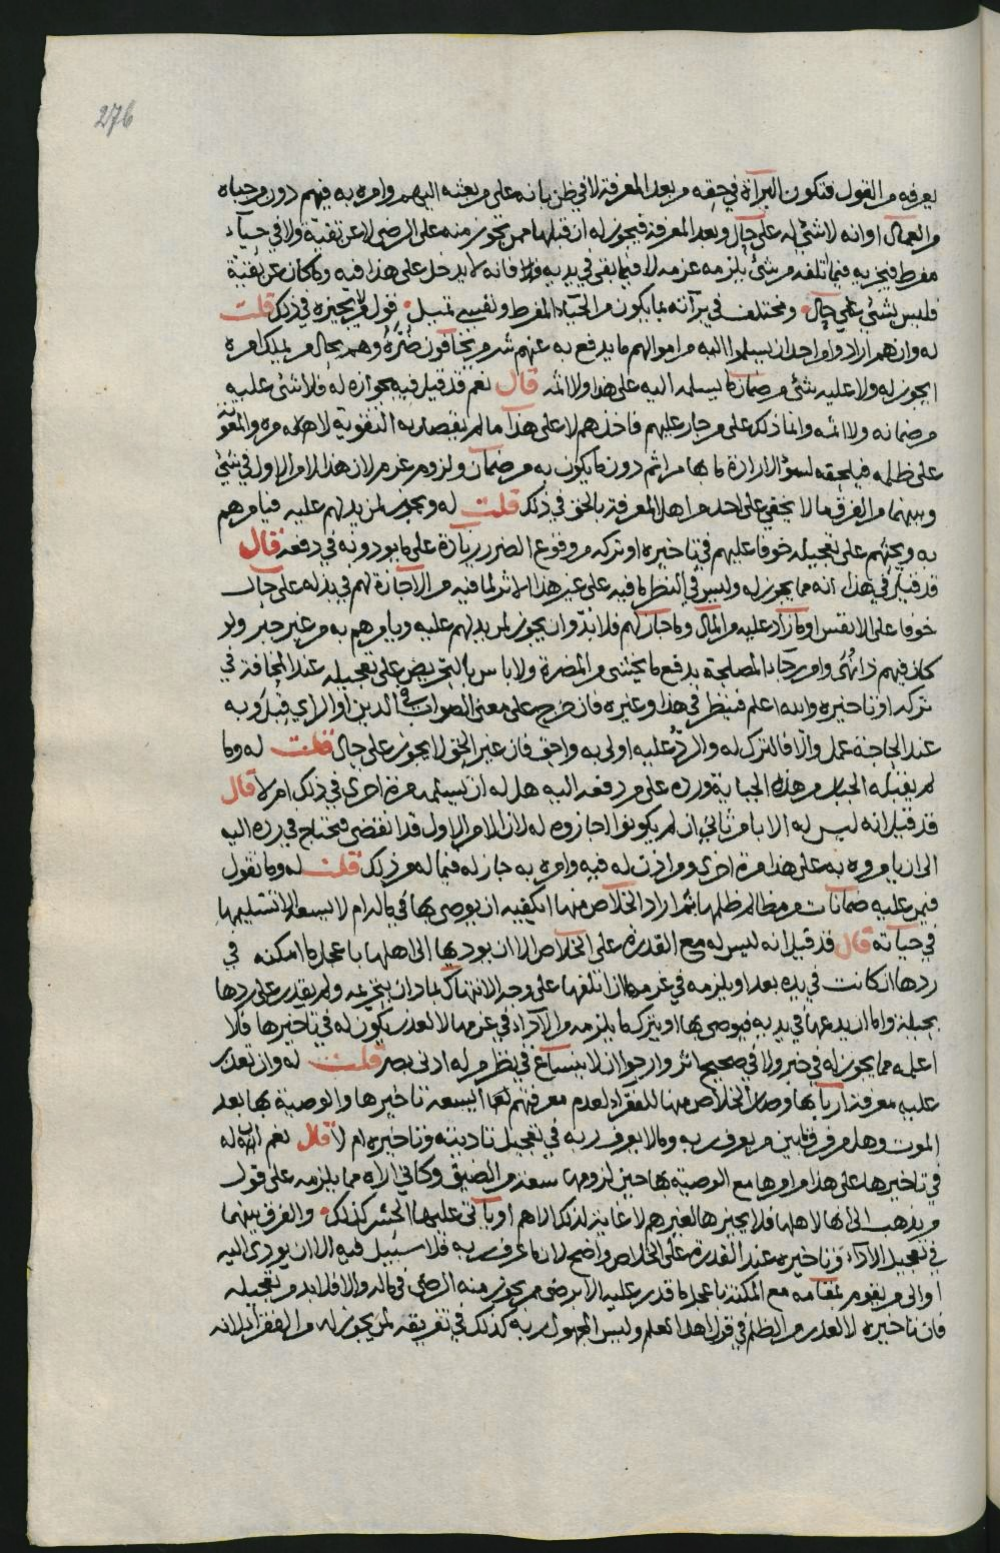 276
يعرفه من القول فتكون البرآة في حقه من بعد المعرفة لا في ظن بانه على من بعثه اليهم وامره به فيهم دون من جباه
من العمال اوانه لا شيء له على حال وبعد المعرفة فيجوز له ان قبلها ممن تجوز منه على الرضى لا عن تقية ولا في حيآء
مفرط فيجزيه فيما اتلفه من شيء يلزمه غرمه لا فيما بقي في يديه فانه لا يدخل على هذا فيه وما كان عن تقية
فليس بشيء على حال ومختلف في برآته بما يكون من الحيآء المفرط ونفسي تميل قول من لا يجيزه في ذلك قلت
له وان هم ارادوا من احد ان يسلموا اليه من اموالهم ما يدفع به عنهم شر من يخافون ضره وهم بحال من يملك امره
ايجوز له ولا عليه شيء من ضمان ما يسلمه اليه على هذا ولا اثم قال نعم قد قيل فيه بجوازه له فلا شيء عليه
من ضمانه ولا اثمه وانما ذلك على من جار عليهم فاخذهم لا على هذا ما لم يقصد به التقوية لاهله من والمعونة
على ظلمه فيلحقه لسوء الارادة ما بها من اثم دون ما يكون به من ضمان ولزوم غرم لان هذا لا من الاول في شيء
وبينهما من الفرق ما لا يخفى على احد من اهل المعرفة بالحق في ذلك قلت له ويجوز لمن يدلهم عليه فيامرهم
به ويحثهم على تعجيله خوفا عليهم في تاخيره او تركه من وقوع الضرر زيادة على ما يودونه في دفعه قال
قد قيل في هذا انه مما يجوز له وليس في النظر ما فيه على غير هذا الاثر لما فيه من الاجازة لهم في بذله على حال
خوفا على الانفس او ما زاد عليه من المال وما جاز لهم فلا بد وان يجوز لمن يدلهم عليه ويامرهم به من غير جبر ولو
كان فيهم ذا نهى وامر رجاء المصلحة بدفع ما يخشى من المضرة ولا باس بالتحريض على تعجيله عند المخافة في
تركه او تاخيره والله اعلم فينظر في هذا وغيره فان خرج على معنى الصواب في الدين او الراي قبل وبه
عند الحاجة عمل والا فالترك له والرد عليه اولى به واحق فان غير الحق لا يجوز على حال قلت له وما
لم يقبله الجبار من هذه الجباية ورده على من دفعه اليه هل له ان يسلمه مرة اخرى في ذلك ام لا قال
قد قيل انه ليس له الا بامر ثاني ان لم يكونوا اجازوه له لان الامر الاول قد انقضى فيحتاج في رده اليه
الى ان يامروه به على هذا مرة اخرى ومن اذن له فيه وامره به جاز له فيما له من ذلك قلت له وما تقول
فيمن عليه ضمانات من مظالم ظلمها ثم اراد الخلاص منها ايكفيه ان يوصى بها في ماله ام لا يسعه الا تسليمها
في حياته قال قد قيل انه ليس له مع القدرة على الخلاص الا ان يوديها الى اهلها باعجل ما امكنه في
ردها ان كانت في يده بعد او يلزمه في غرمها ان اتلفها على وجه الانتهاك لما دان بتحريمه ولم يقدر على ردها
بحيلة واما ان يدعها في يديه فيوصى بها او يترك ما يلزمه من الادآء في غرمها لا لعذر يكون له في تاخيرها فلا
اعلمه مما يجوز له في خبر ولا في صحيح اثر وارجوا ان لا ينساغ في نظر من له ادنى بصر قلت له وان تعذر
عليه معرفة اربابها وصار الخلاص منها للفقرآء لعدم معرفتهم لها ايسعه تاخيرها والوصية بها بعد
الموت وهل من فرق بين من يعرف ربه وما لا يعرف ربه في تعجيل تاديته وتاخيره ام لا قال نعم ان له
في تاخيرها على هذا من امرها مع الوصية بها حين لزومها سعة من الضيق وكاني اراه مما يلزمه على قول
من يذهب الى انها لاهلها فلا يجيزها لغيرهم لا غاية لذلك الا هم او ياتى عليها الحشر كذلك والفرق بينهما
في تعجيل الادآء وتاخيره عند القدرة على الخلاص واضح لان ما عرف ربه فلا سبيل فيه الا ان يودى اليه
او الى من يقوم بمقامه مع المكنة باعجل ما قدر عليه الا برضى ممن يجوز منه الرضى في ماله والا فلا بد من تعجيله
فان تاخيره لا لعذر من الظلم في قول اهل العلم وليس المجهول ربه كذلك في تفريقه لمن يجوز له من الفقرآء لانه